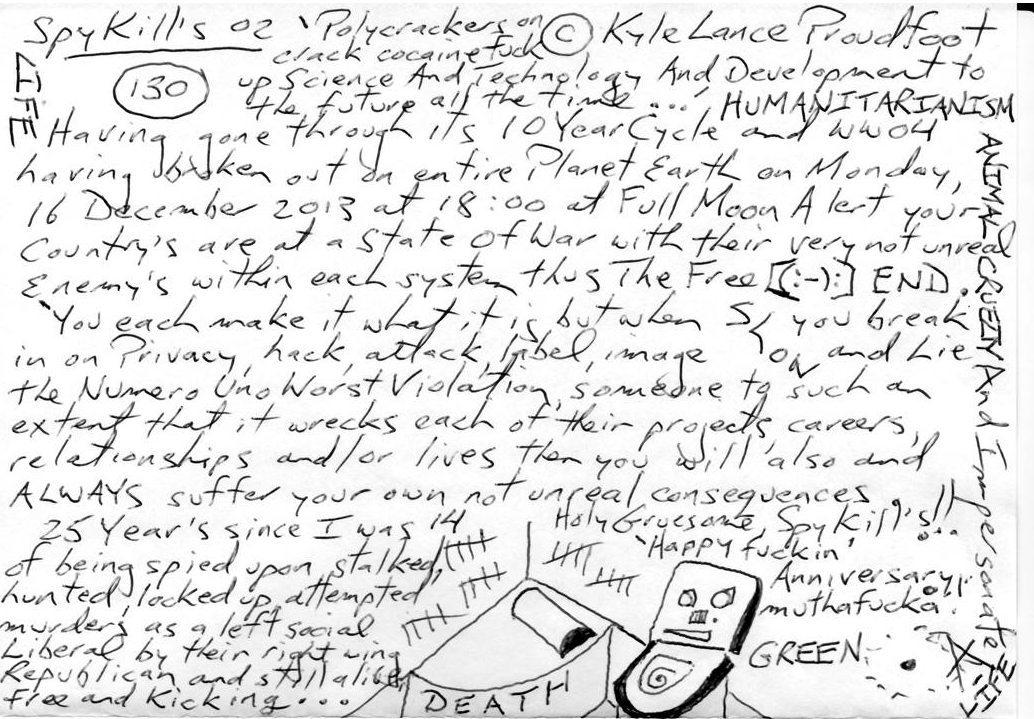 SpyKill's 02 'Polycrackers on
crack cocaine fuck
© Kyle Lance Proudfoot
130
up Science And Technology And Development to
the future all the time...' HUMANITARIANISM
LIFE
Having gone through its 10 Year Cycle and WW04
having broken out on entire Planet Earth on Monday,
16 December 2013 at 18:00 at Full Moon Alert your
Country's are at a State Of War with their very not unreal
Enemy's within each system thus The Free [(:-):] END.
'You each make it what it is but when S{ you break
in on Privacy, hack, attack, label, image on and Lie
the Numero Uno Worst Violation, someone to such an
extent that it wrecks each of their projects, careers,
relationships and/or lives then you will also and
ALWAYS suffer your own not unreal consequences.!!
25 Year's since I was 14
of being spied upon, stalked,
hunted, locked up, attempted
murders as a left social
Liberal by their right wing
Republican and still alive,
free and kicking...
Holy Gruesome, SpyKill's!!..
'Happy fuckin'
Anniversary,
muthafucka.!!
GREEN
DEATH
ANIMAL CRUELTY And Impersonate